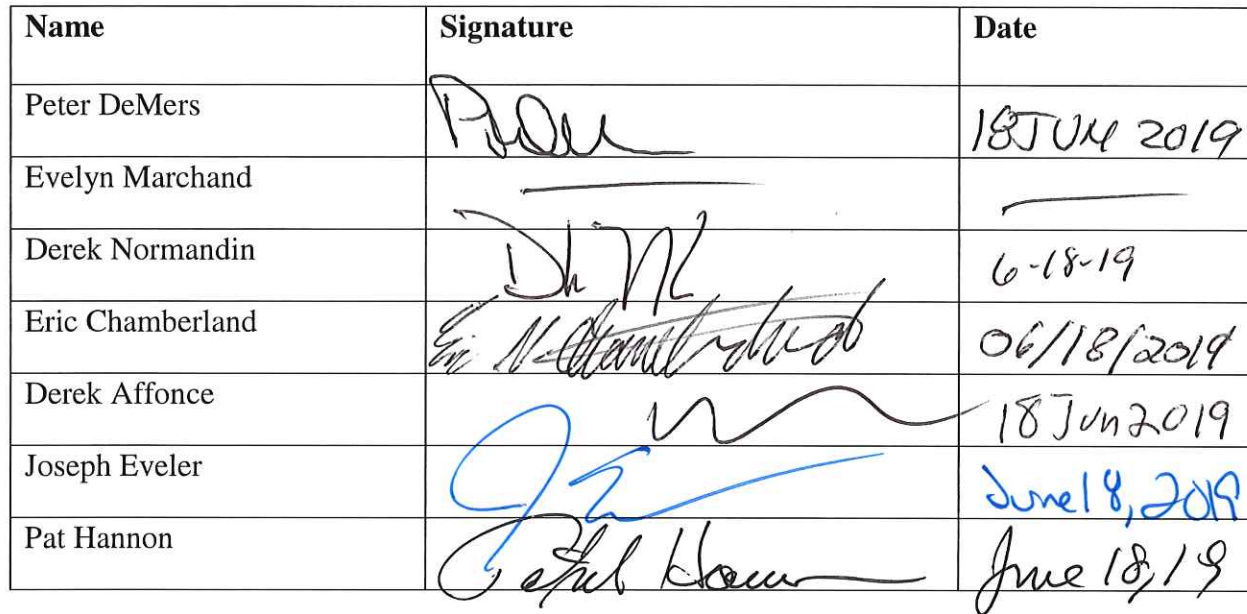 Name Signature Date
Peter DeMers 18JUN 2019
Evelyn Marchand
Derek Normandin 6-18-19
Eric Chamberland 06/18/2019
Derek Affonce 18Jun2019
Joseph Eveler June18,2019
Pat Hannon June 18,19